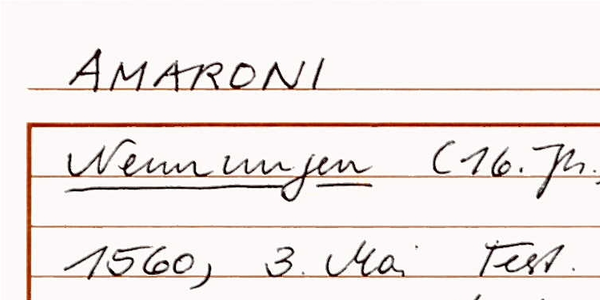 AMARONI
Nennungen (16. Jh.,
1560, 3. Mai Test.